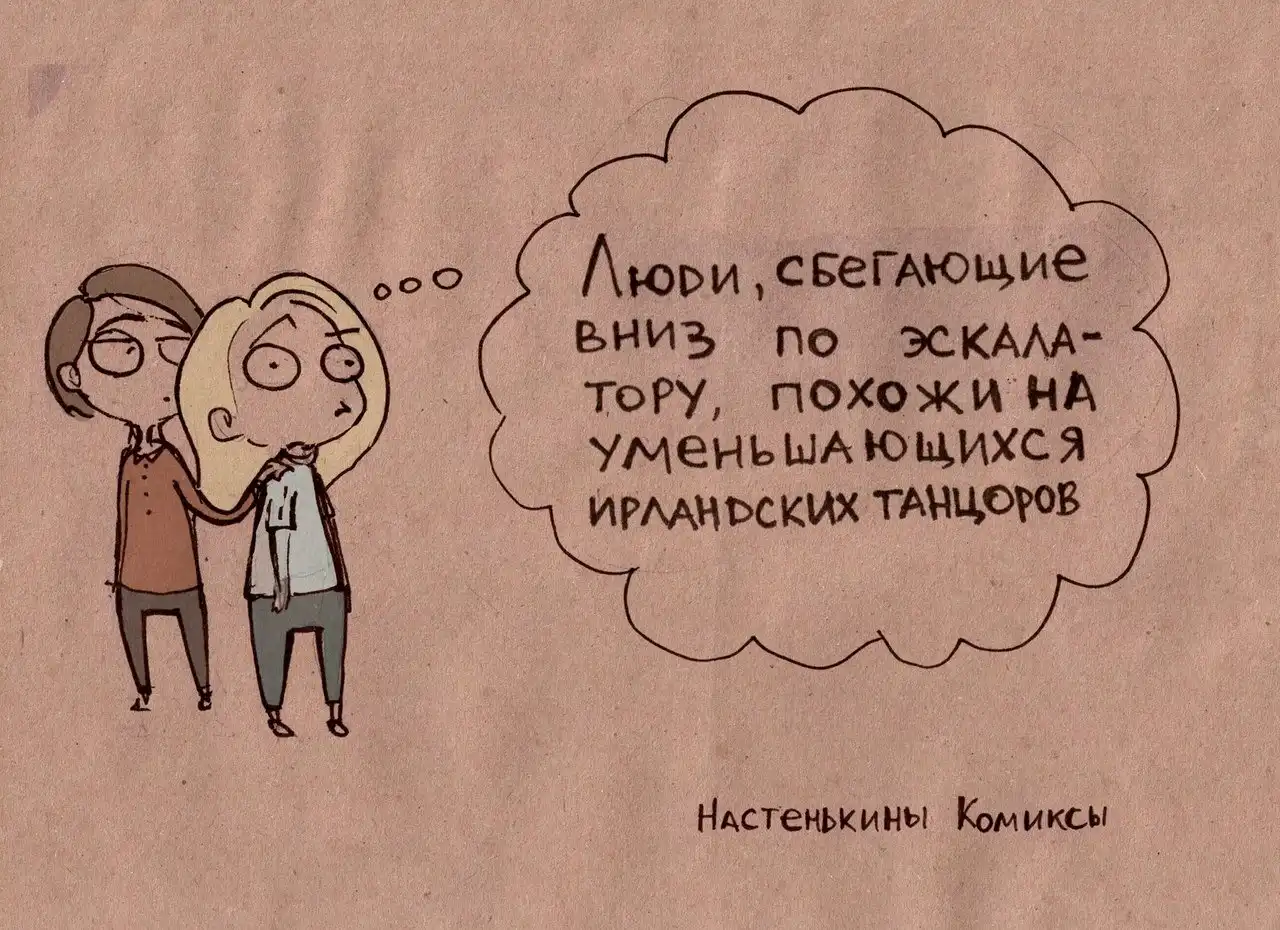 Люди, сбегающие
вниз по эскала-
тору, похожи на
уменьшающихся
ирландских танцоров
Настенькины Комиксы